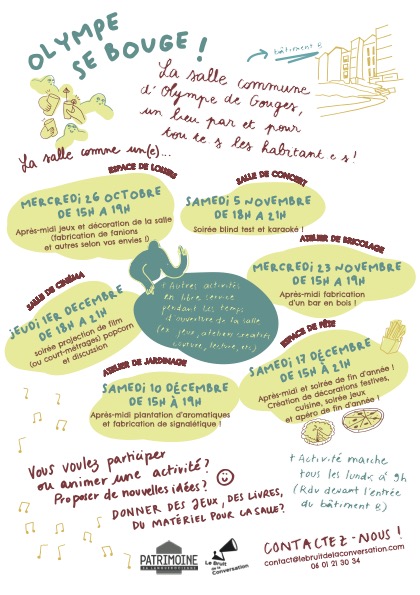 OLYMPE
SE BOUGE !
bâtiment B
La salle commune
d'Olympe de Gouges,
un lieu par et pour
tou·te·s les habitant·e·s !
La salle comme un(e)...
ESPACE DE LOISIRS
MERCREDI 26 OCTOBRE
DE 15H A 19H
Après-midi jeux et décoration de la salle
(fabrication de fanions
et autres selon vos envies !)
SALLE DE CONCERT
SAMEDI 5 NOVEMBRE
DE 18H A 21H
Soirée blind test et karaoké !
ATELIER DE BRICOLAGE
MERCREDI 23 NOVEMBRE
DE 15H A 19H
Après-midi fabrication
d'un bar en bois !
SALLE DE CINÉMA
JEUDI 1ER DECEMBRE
DE 18H A 21H
soirée projection de film
(ou court-métrages) popcorn
et discussion
+ Autres activités
en libre service
pendant les temps
d'ouverture de la salle
(ex : jeux, ateliers créatifs
couture, lecture, etc)
ESPACE DE FÊTE
SAMEDI 17 DÉCEMBRE
DE 15H À 21H
Après-midi et soirée de fin d'année !
Création de décorations festives,
cuisine, soirée jeux
et apéro de fin d'année !
ATELIER DE JARDINAGE
SAMEDI 10 DÉCEMBRE
DE 15H À 19H
Après-midi plantation d'aromatiques
et fabrication de signalétique !
Vous voulez participer
ou animer une activité ?
Proposer de nouvelles idées ?
DONNER DES JEUX, DES LIVRES,
DU MATÉRIEL POUR LA SALLE ?
+ Activité marche
tous les lundis à 9h
(Rdv devant l'entrée
du bâtiment B)
CONTACTEZ-NOUS !
contact@lebruitdelaconversation.com
06 01 21 30 34
PATRIMOINE
Le Bruit
de la
Conversation